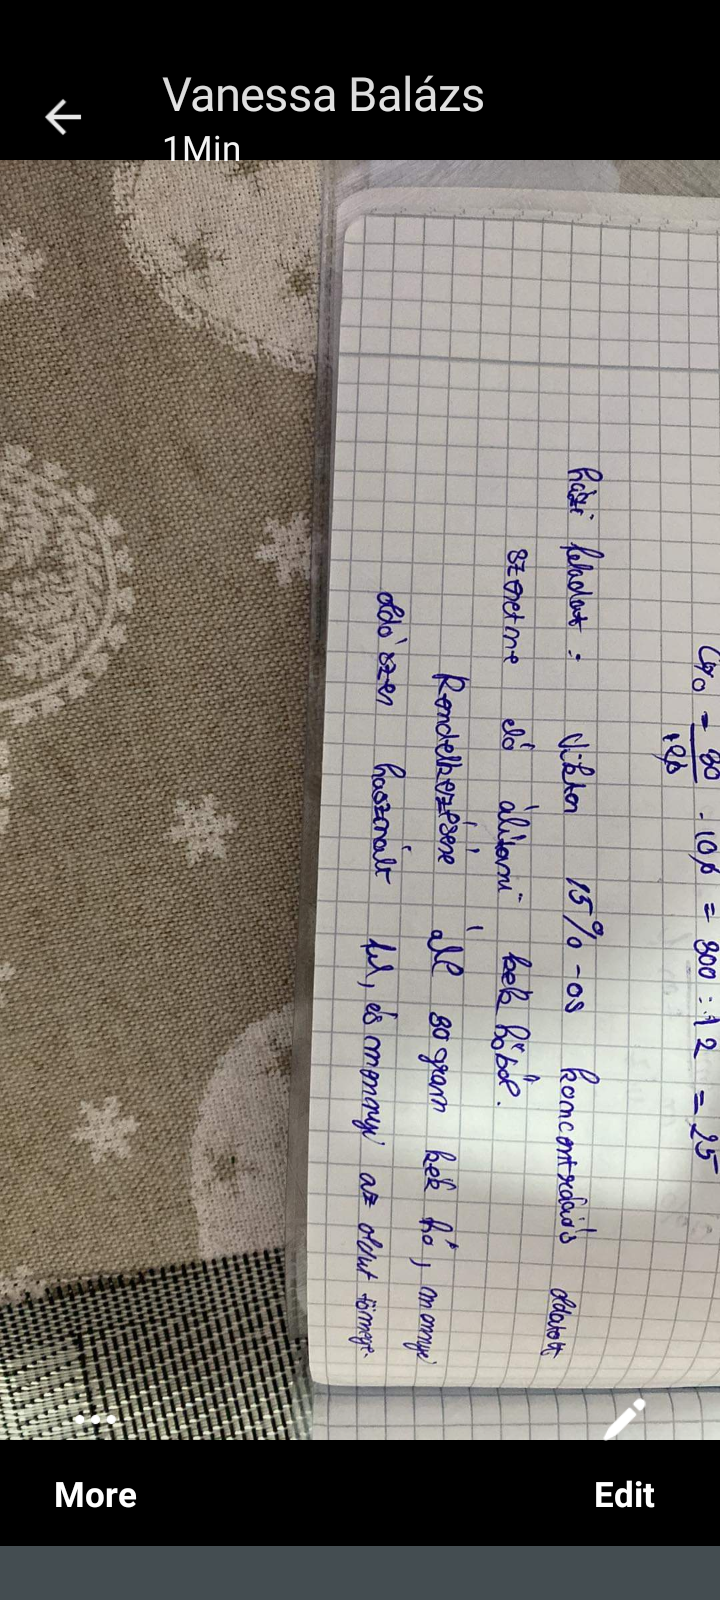 Vanessa Balázs
1Min
= 300 : 12 = 25
házi feladat : Viktor 15%-os koncentrációs oldatot
szeretne elő álitani kék kőből.
Rendelkezésére áll 90 gram kék kő, mennyi
oldószer használt fel, és mennyi az oldat tömege.
More
Edit